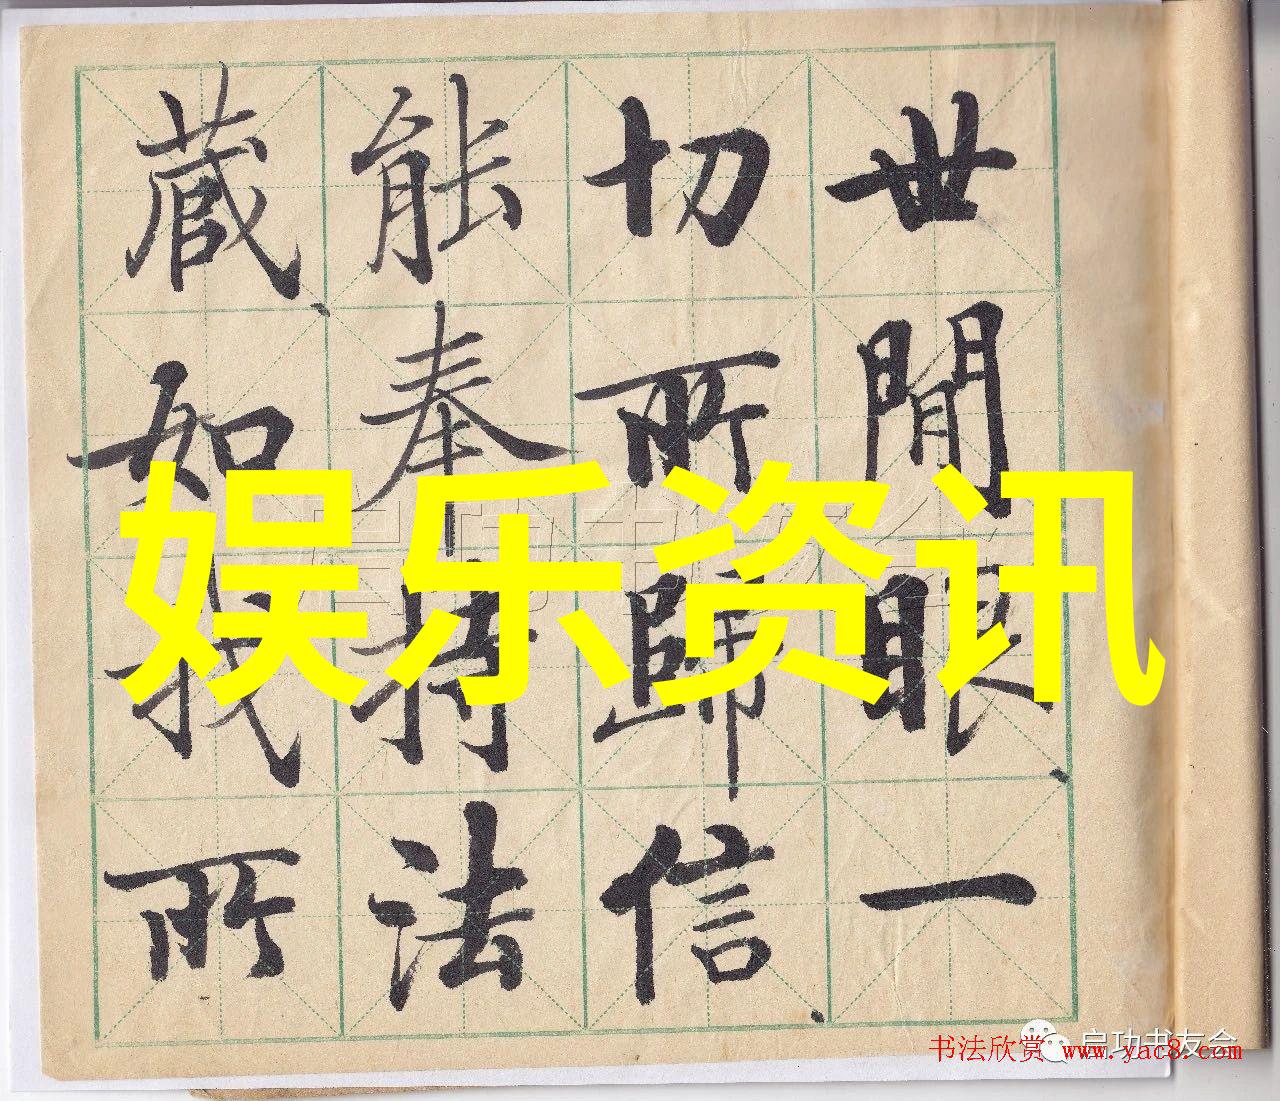 世間眼一
切所歸信
能奉持法
藏如我所
娱乐资讯
启功书友会
书法欣赏 www.yac8.com